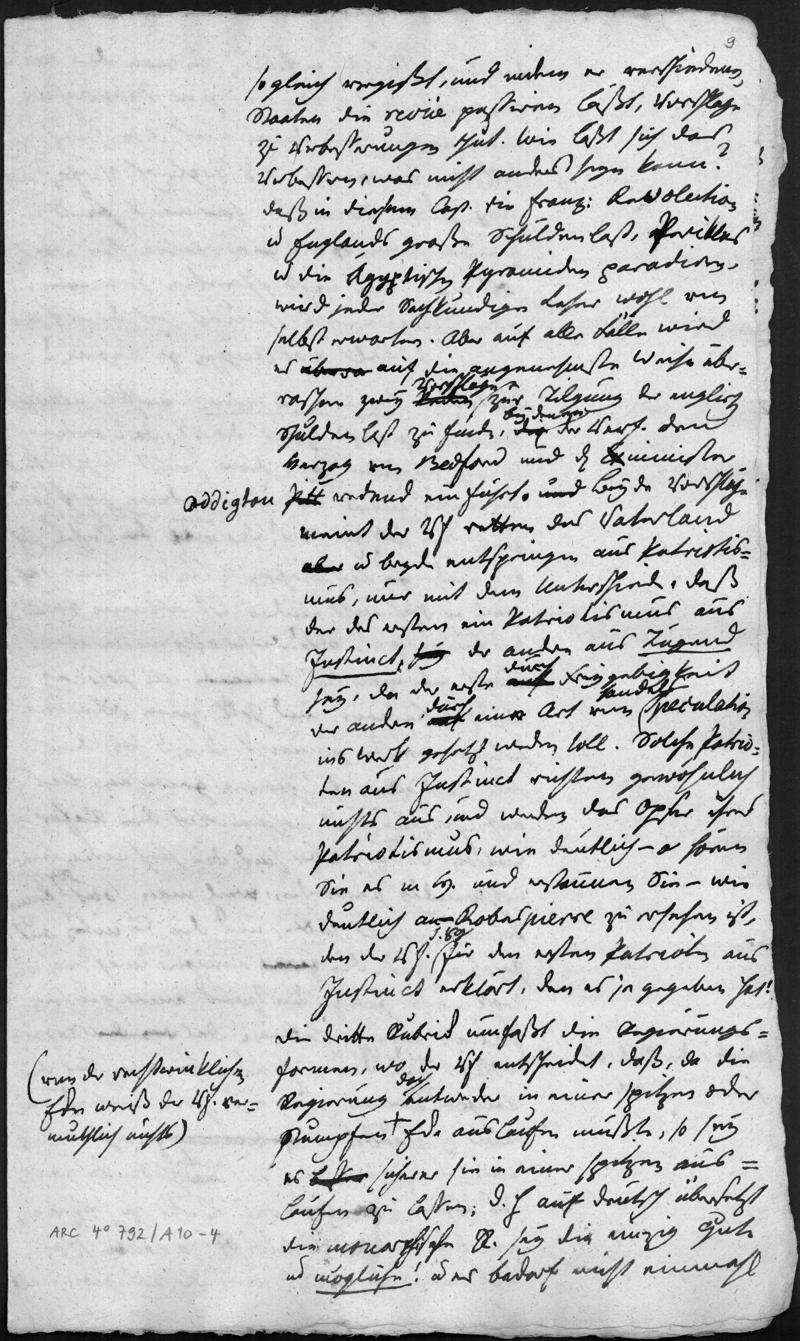 9
sogleich vergißt, und indem er verschiedene
Staaten die revüe passiren läßt, Vorschläge
zu Verbesserungen thut. Wie läßt sich das
Verbessern, was nicht anders seyn kann?
daß in diesem Cap. die franz: Revolution
u Englands große Schuldenlast, Perikles
u die Ägyptischen Pyramiden paradiren,
wird jeder Sachkundige Leser wohl von
selbst erwarten. Aber auf alle Fälle wird
er auf die angenehmste Weise über-
raschen zwey Vorschläge zur Tilgung der englisch
Schuldenlast zu finden, bey denen der Verf. den
Herzog von Bedford und d Exminister
Addigton Pitt redend einführt. und beyde Vorschläge
meint der Vf retten das Vaterland
aber u beyde entspringen aus Patriotis-
mus, nur mit dem Unterschiede, daß
der des ersten ein Patriotismus aus
Instinct, der andere aus Tugend
sey, da der erste durch Freygebigkeit
der andere durch eine Art von Handels Speculation
ins Werk gesetzt werden soll. Solche Patrio-
ten aus Instinct richten gewöhnlich
nichts aus, und werden das Opfer ihres
Patriotismus, wie deutlich – o hören
Sie es und erstaunen Sie – wie
deutlich an Robespierre zu ersehen ist,
den der Vf. S. 89 für den ersten Patrioten aus
Instinct erklärt, den es je gegeben hat!
die dritte Rubrik umfaßt die Regierungs-
formen, wo der Vf entscheidet, daß, da die
Regierung doch entweder in einer spitzen oder
stumpfen + Ecke auslaufen müßte, so sey
es besser sicherer sie in einer spitzen aus-
laufen zu lassen; d. h auf deutsch übersetzt
die monarchische R. sey die einzig gute
und mögliche! u es bedarf nicht einmahl
(von der rechtwinklichen
Ecke weiß der Vf. ver-
muthlich nichts)
ARC 4° 792/A10-4